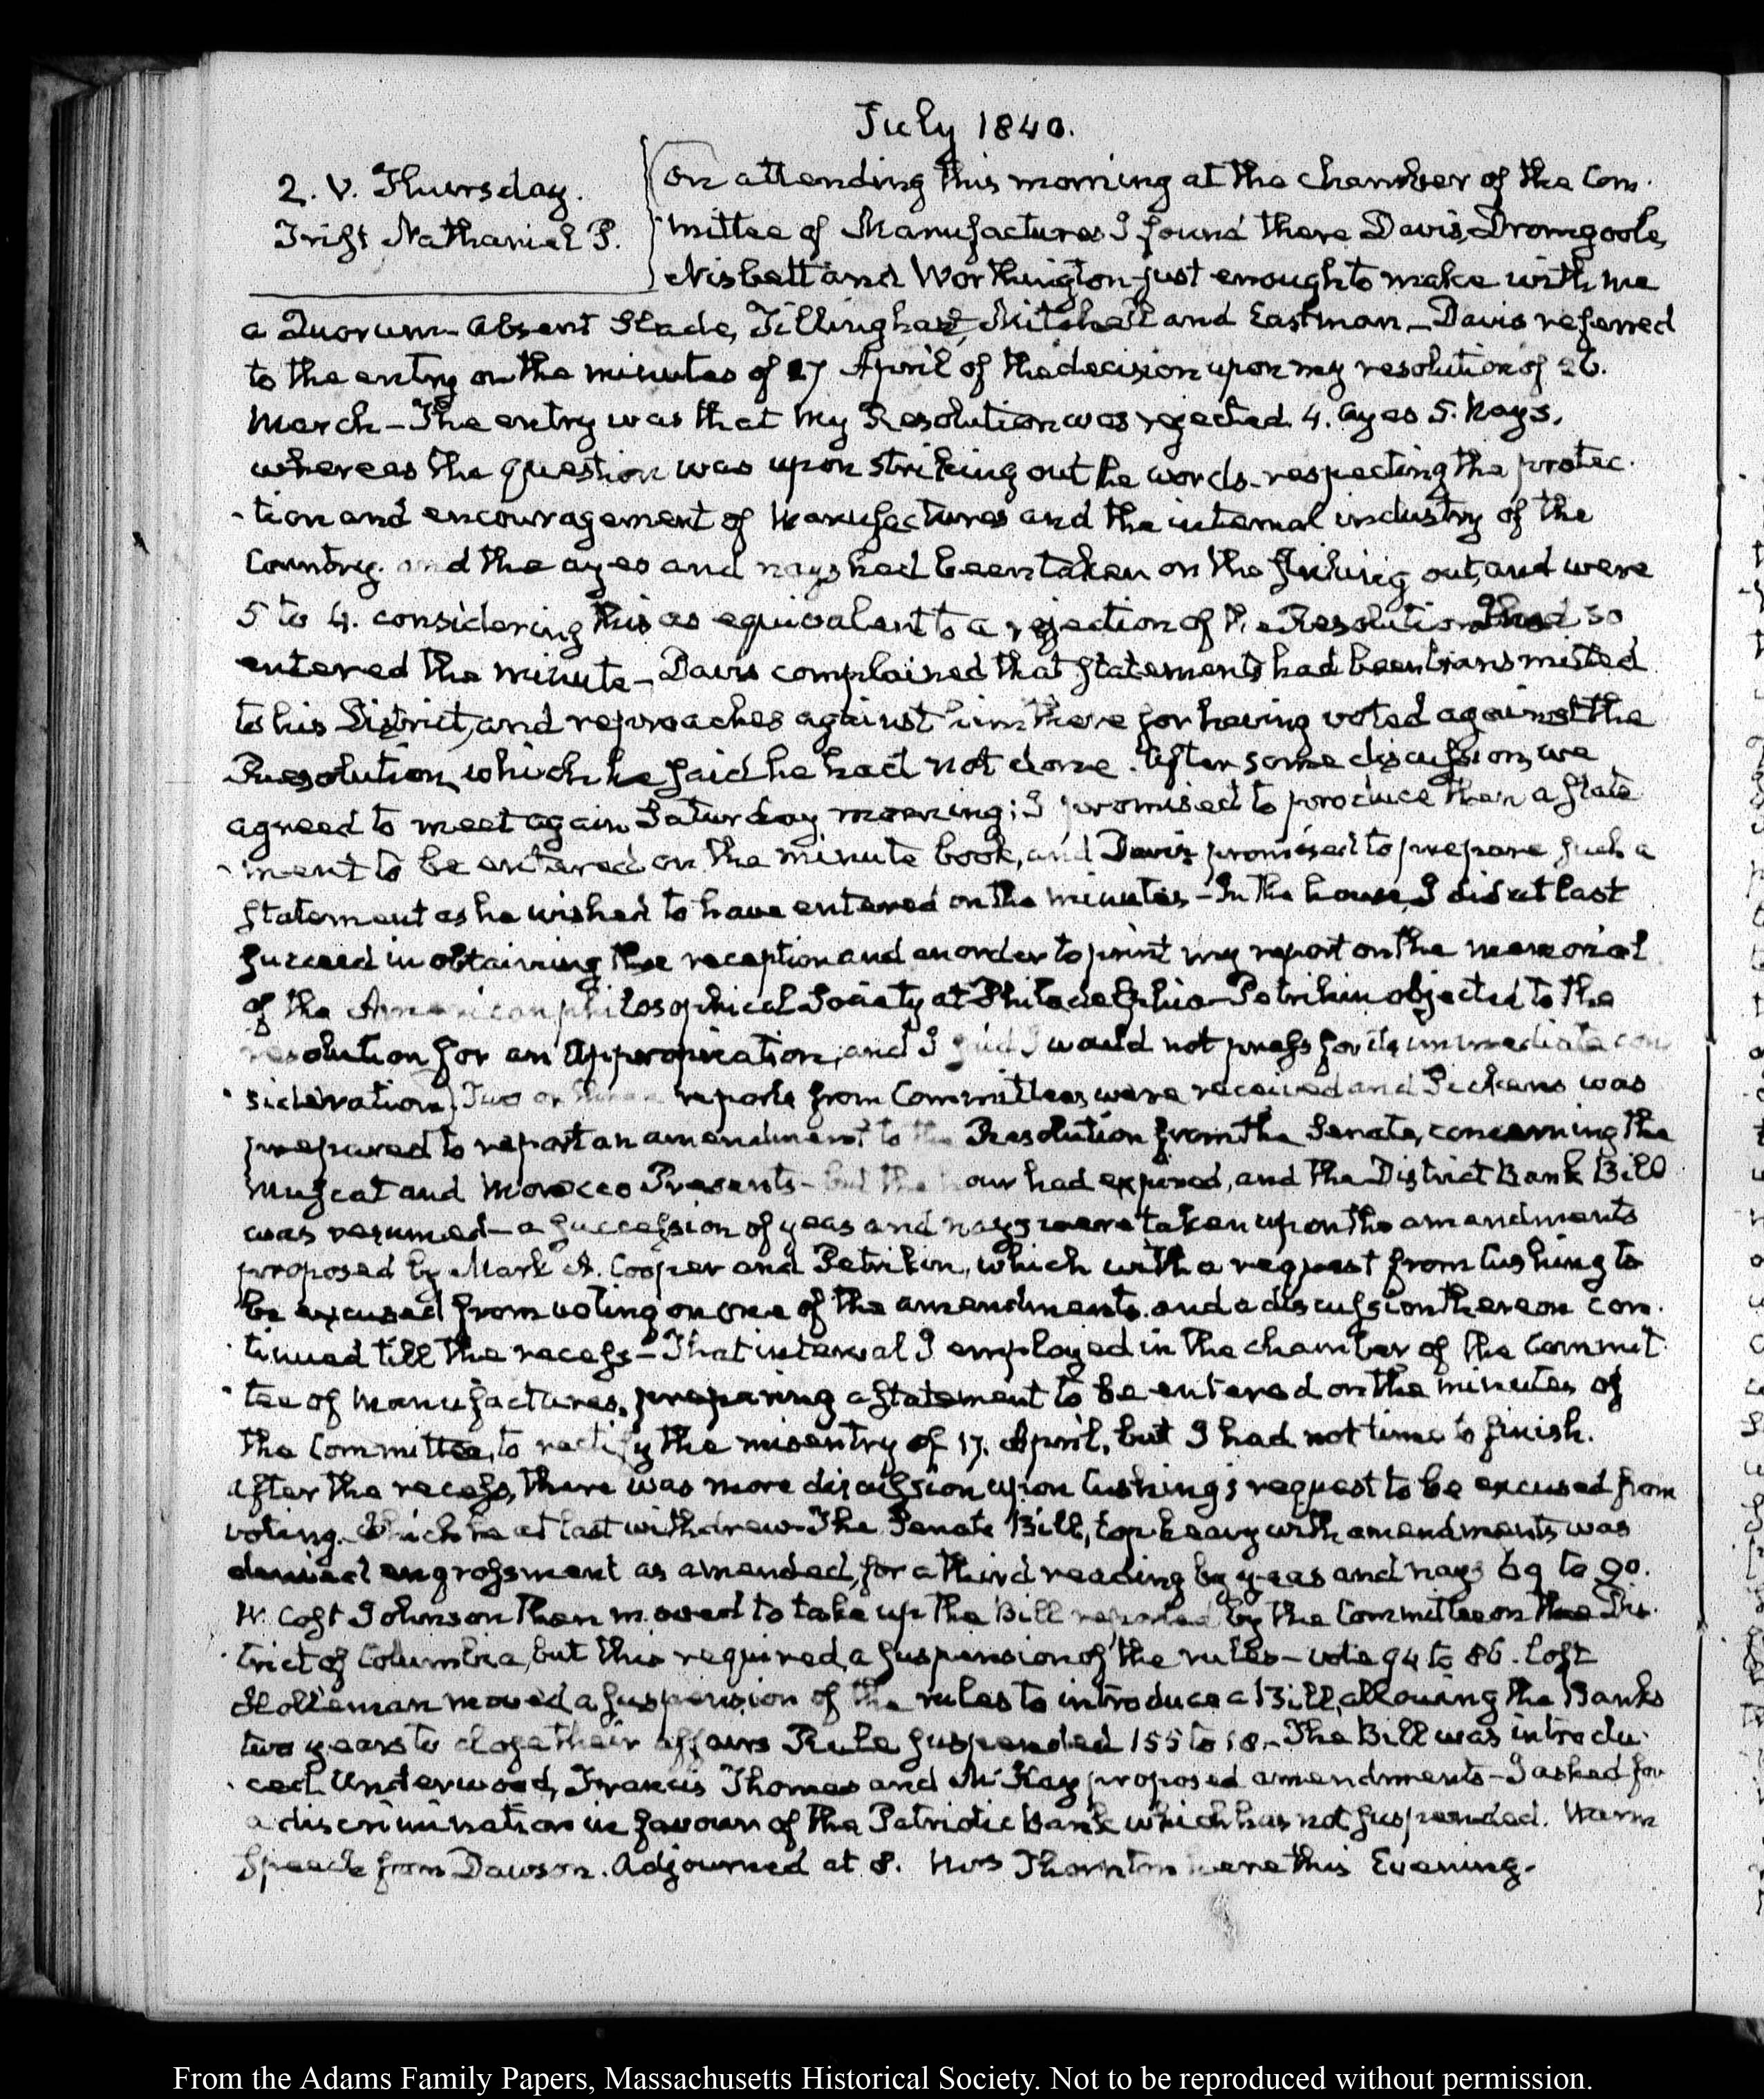 July 1840.
2. V. Thursday.
Trist Nathaniel P.
On attending this morning at the chamber of the Com-
mittee of Manufactures I found there Davis, Dromgoole,
Nisbett and Worthington just enough to make with me
a Quorum- absent Slade, Tillinghast, Mitchell and Eastman,- Davis referred
to the entry on the minutes of 27 April of the decision upon my resolution of 26.
March- The entry was that my Resolution was rejected 4. ayes 5. Nays,
whereas the question was upon striking out the words- respecting the protec-
-tion and encouragement of Manufactures and the internal industry of the
Country. and the ayes and nays had been taken on the striking out, and were
5 to 4. considering this as equivalent to a rejection of the Resolution had so
entered the minute- Davis complained that statements had been transmitted
to his District, and reproaches against him there for having voted against the
Resolution, which he said he had not done. After some discussion, we
agreed to meet again Saturday morning; I promised to produce then a state
-ment to be entered on the minute book, and Davis promised to prepare such a
statement as he wished to have entered on the minutes- In the house, I did at last
succeed in obtaining the reception and an order to print my report on the memorial
of the American philosophical Society at Philadelphia- Petrikin objected to the
resolution for an appropriation, and I said I would not press for its immediate con
-sideration. Two or three reports from Committees were received and Pickens was
prepared to report an amendment to the Resolution from the Senate, concerning the
Muscat and Morocco Presents- but the hour had expired, and the District Bank Bill
was resumed- a succession of yeas and nays were taken upon the amendments
proposed by Mark A. Cooper and Petrikin, which with a request from Cushing to
be excused from voting on one of the amendments. and a discussion thereon con-
-tinued till the recess- That interval I employed in the chamber of the Commit
-tee of Manufactures, preparing a statement to be entered on the minutes of
the Committee, to rectify the misentry of 17. April, but I had not time to finish.
after the recess, there was more discussion upon Cushing's request to be excused from
voting. Which he at last withdrew- The Senate Bill, top heavy with amendments was
denied engrossment as amended, for a third reading by yeas and nays 69 to 90.
W. Cost Johnson then moved to take up the Bill reported by the Committee on the Dis-
-trict of Columbia, but this required a suspension of the rules- vote 94 to 86. lost
Holleman moved a suspension of the rules to introduce a Bill, allowing the Banks
two years to close their affairs Rule suspended 155 to 18.- The Bill was introdu-
-ced Underwood, Francis Thomas and McKay proposed amendments- I asked for
a discrimination in favour of the Patriotic Bank which has not suspended. Warm
speech from Dawson. Adjourned at 8. Mrs Thornton here this Evening.
From the Adams Family Papers, Massachusetts Historical Society. Not to be reproduced without permission.